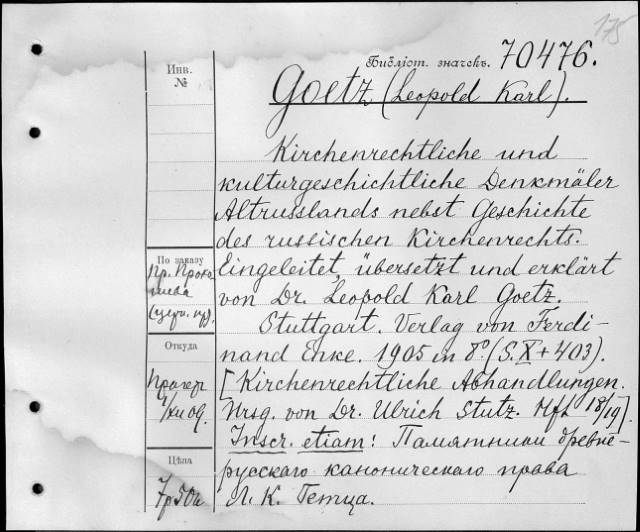 175
Библіот. значекъ. 70476.
Инв.
№
Goetz (Leopold Karl).
Kirchenrechtliche und
kulturgeschichtliche Denkmäler
Altrusslands nebst Geschichte
des russischen Kirchenrechts.
По заказу
Пр. Проко-
пиева
(церк. пр).
Eingeleitet, übersetzt und erklärt
von Dr. Leopold Karl Goetz.
Stuttgart. Verlag von Ferdi-
nand Enke. 1905 in 8º. (S. X + 403).
Откуда
[Kirchenrechtliche Abhandlungen.
Hrsg. von Dr. Ulrich Stutz. Hft 18/19].
Inscr. etiam: Памятники древне-
русскаго каноническаго права
Л. К. Гетца.
Цѣна
7р50к